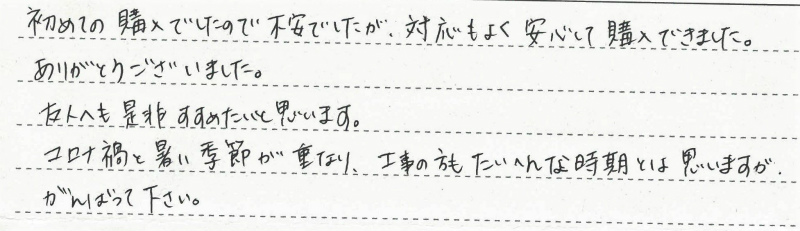 初めての購入でしたので不安でしたが、対応もよく安心して購入できました。
ありがとうございました。
友人へも是非すすめたいと思います。
コロナ禍と暑い季節が重なり、工事の方もたいへんな時期とは思いますが、
がんばって下さい。